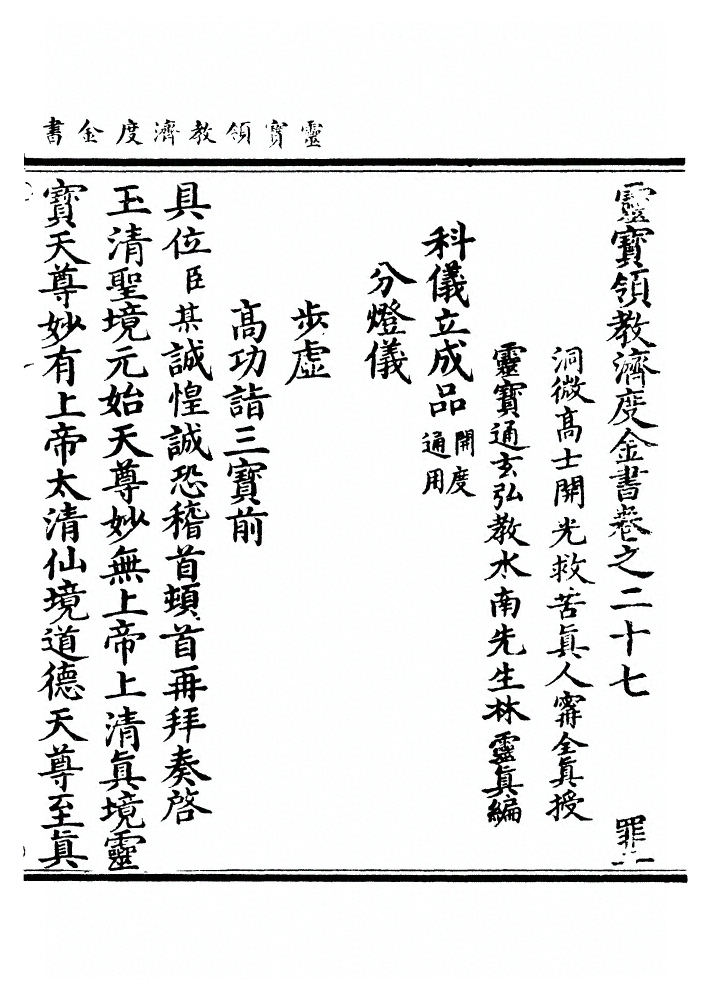 靈寶領教濟度金書
靈寶領教濟度金書卷之二十七 罪
洞微高士開光救苦眞人甯全眞授
靈寶通玄弘教水南先生林靈眞編
科儀立成品 開度通用
分燈儀
步虛
高功詣三寶前
具位臣某誠惶誠恐稽首頓首再拜奏啓
玉清聖境元始天尊妙無上帝上清眞境靈
寶天尊妙有上帝太清仙境道德天尊至眞